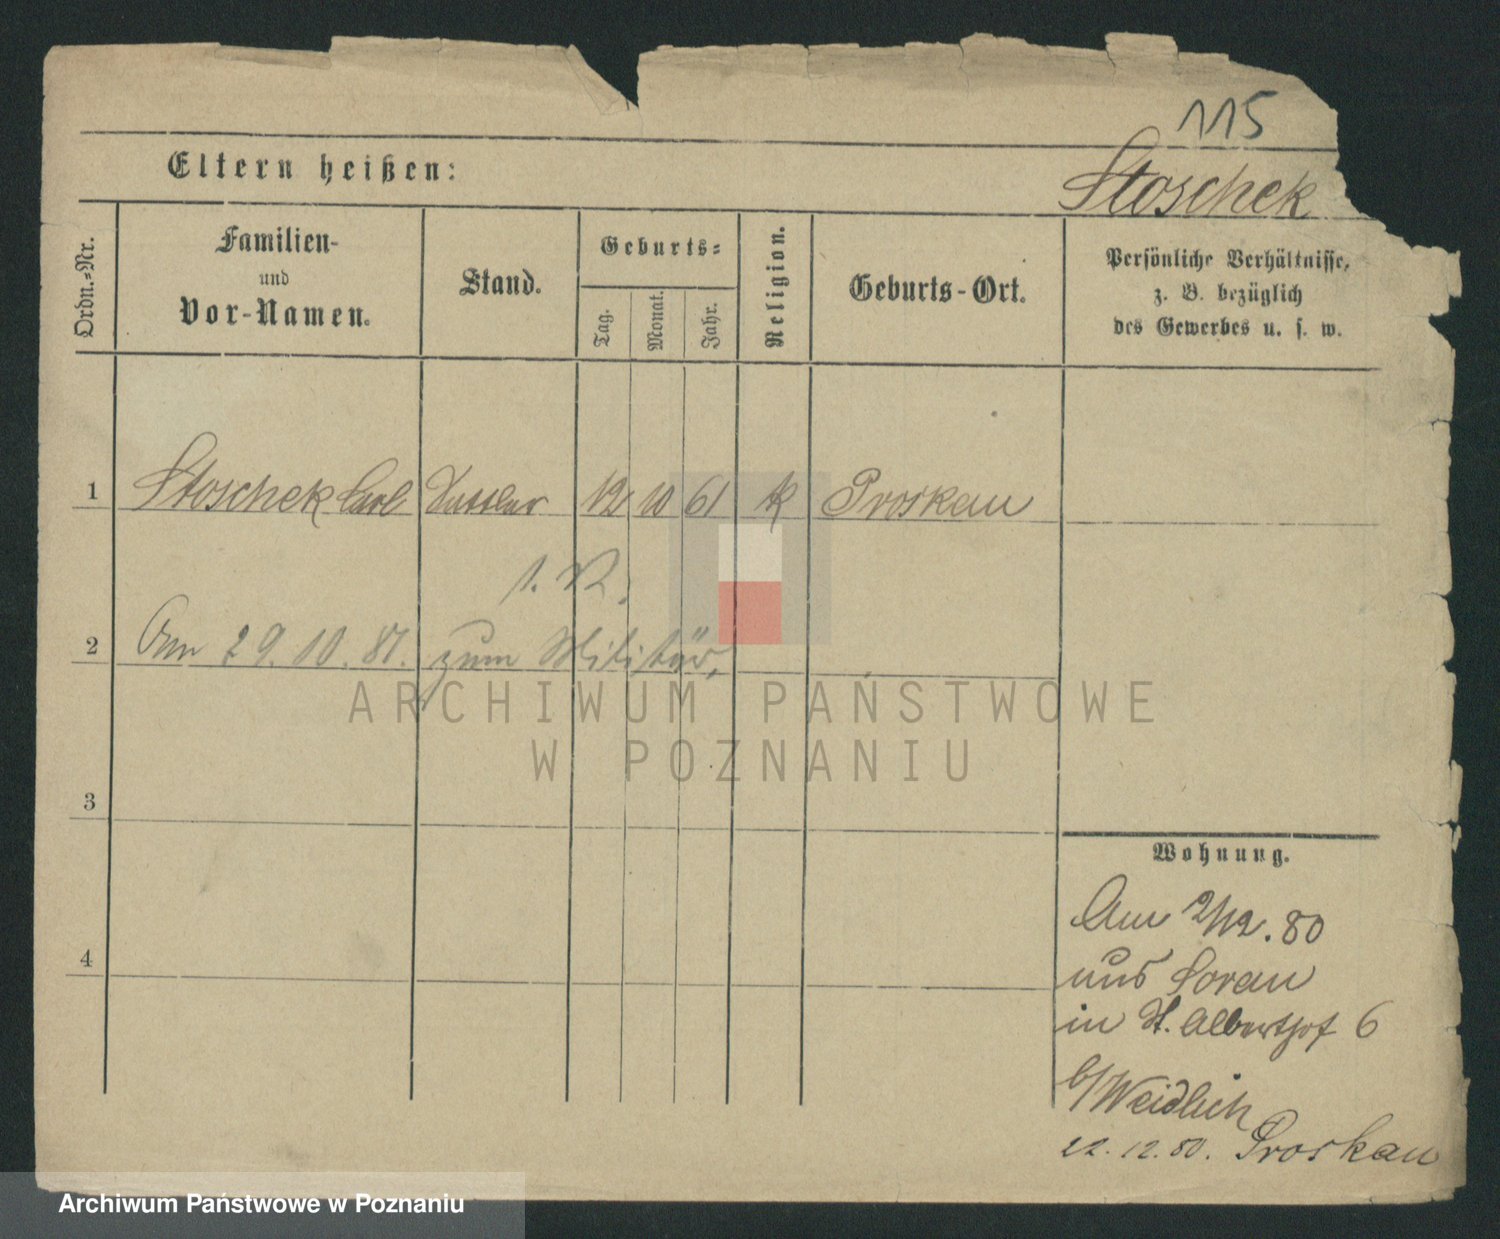 115
Eltern heißen:
Stoschek
Ordn.-Nr.
Familien-
und
Vor-Namen.
Stand.
Geburts-
Tag.
Monat.
Jahr.
Religion.
Geburts-Ort.
Persönliche Verhältnisse,
z. B. bezüglich
des Gewerbes u. s. w.
1 Stoschek Carl Sattler 12 10 61 k Proskau
1. R.
2 Am 29. 10. 81. zum Militär,
3
4
Wohnung.
Am 2/12. 80
aus Sorau
in St. Alberthof 6
b/Weidlich
22. 12. 80. Proskau
ARCHIWUM PAŃSTWOWE
W POZNANIU
Archiwum Państwowe w Poznaniu